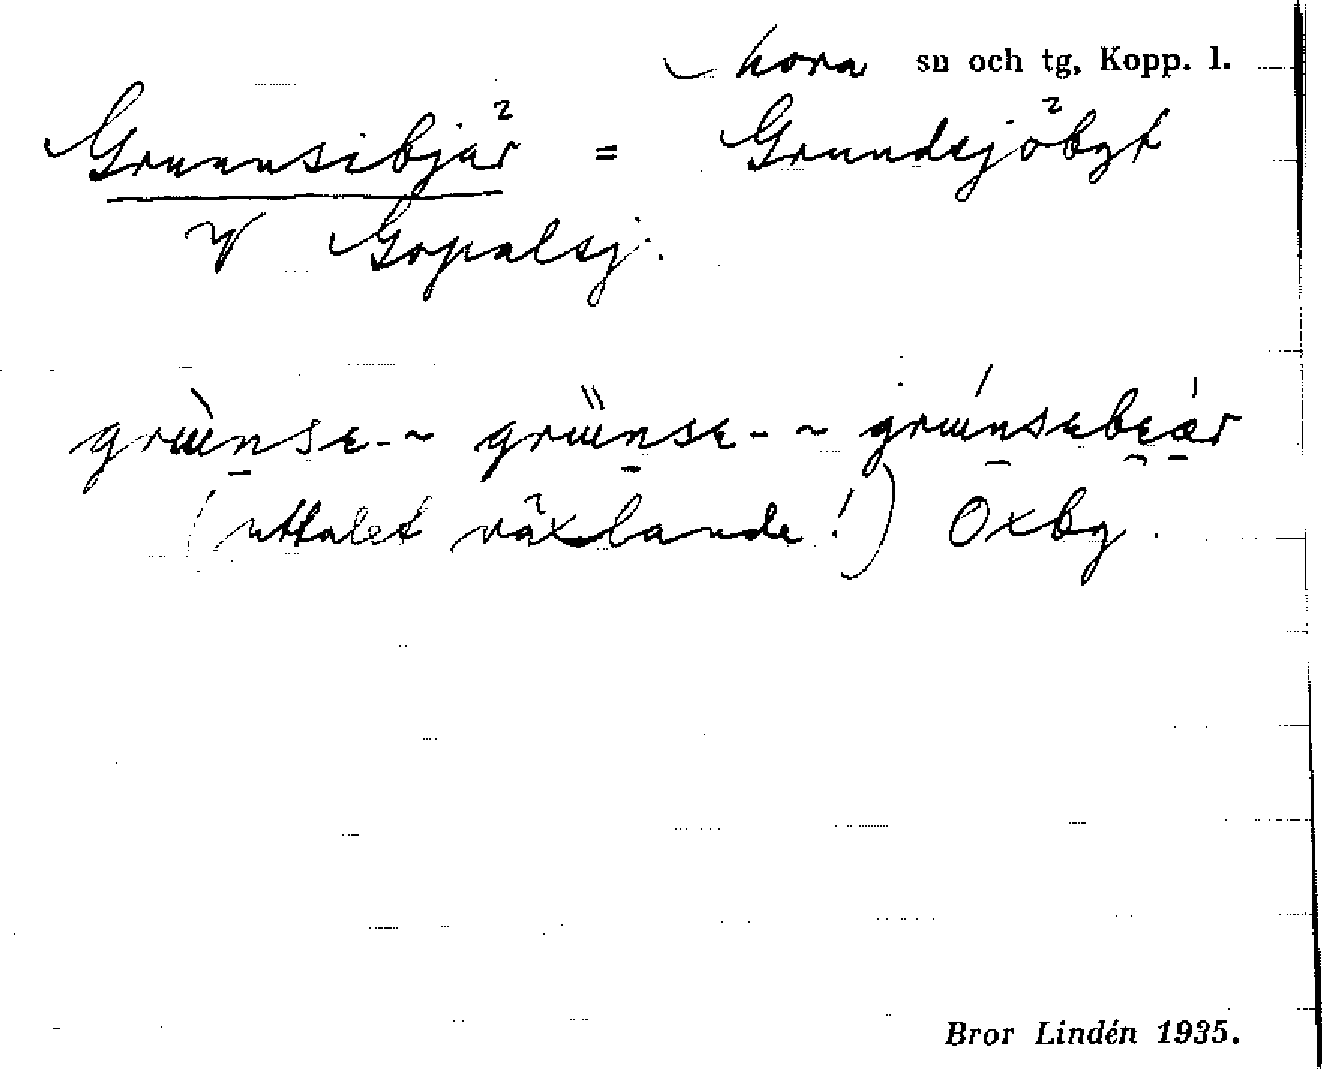 Mora sn och tg, Kopp. l.
Gruunsibjär = Grundsjöbgt
Gopalsj.
grùnse- ~ grünse- ~ grúnsebeær
(uttalet växlande!) Oxbg.
Bror Lindén 1935.